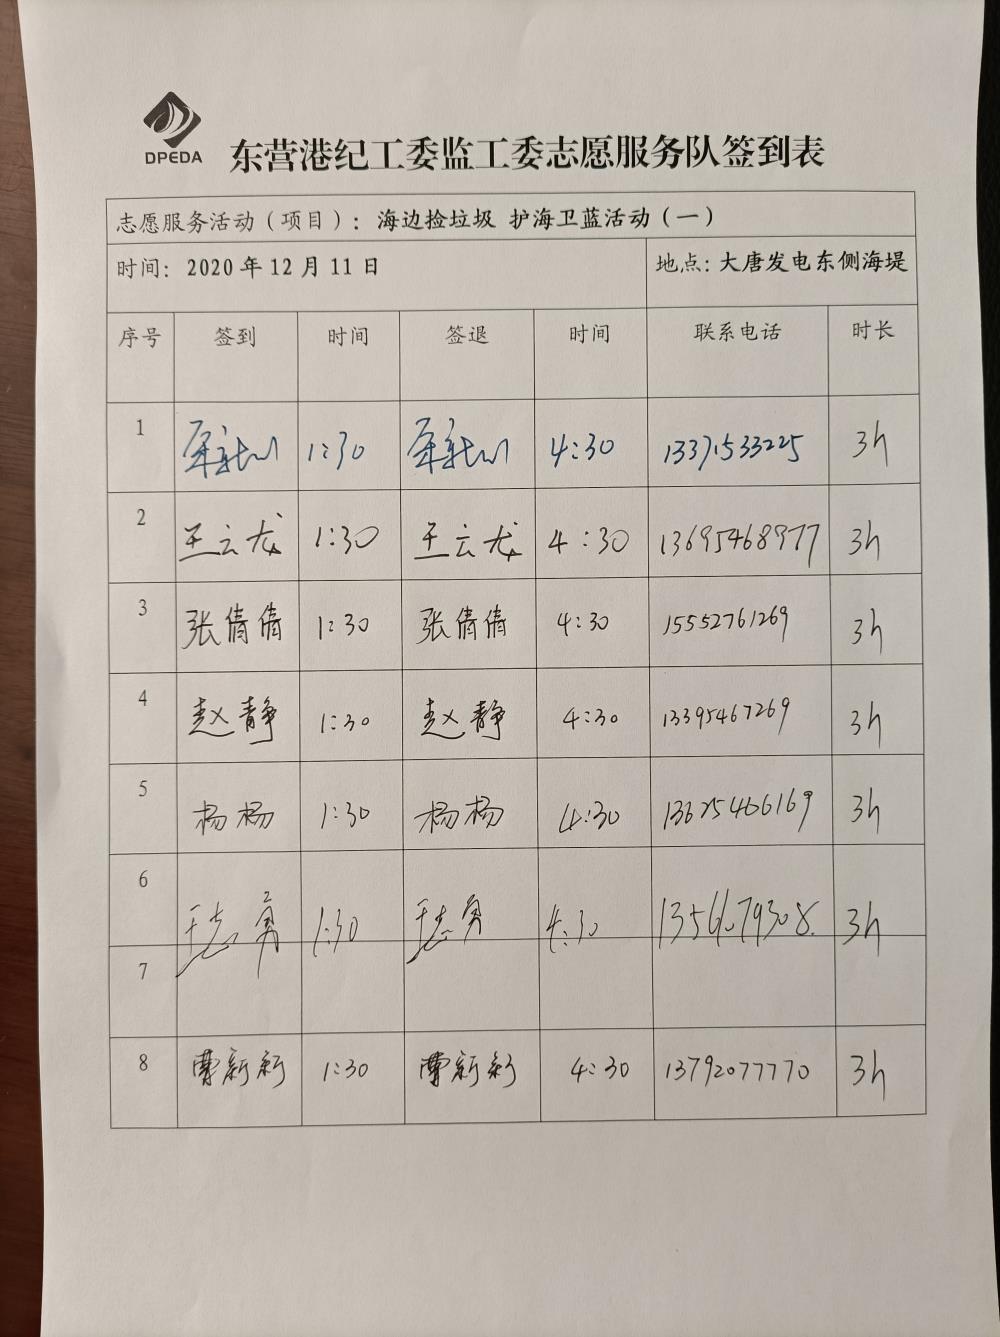 DPEDA
东营港纪工委监工委志愿服务队签到表
志愿服务活动（项目）：海边捡垃圾 护海卫蓝活动（一）
时间：2020年12月11日 地点：大唐发电东侧海堤
序号 签到 时间 签退 时间 联系电话 时长
1 1:30 4:30 13371533225 3h
2 王云龙 1:30 王云龙 4:30 13695468977 3h
3 张倩倩 1:30 张倩倩 4:30 15552761269 3h
4 赵静 1:30 赵静 4:30 13395467269 3h
5 杨杨 1:30 杨杨 4:30 13625466169 3h
6 王志勇 1:30 王志勇 4:30 3h
7
8 曹新新 1:30 曹新新 4:30 13792077770 3h